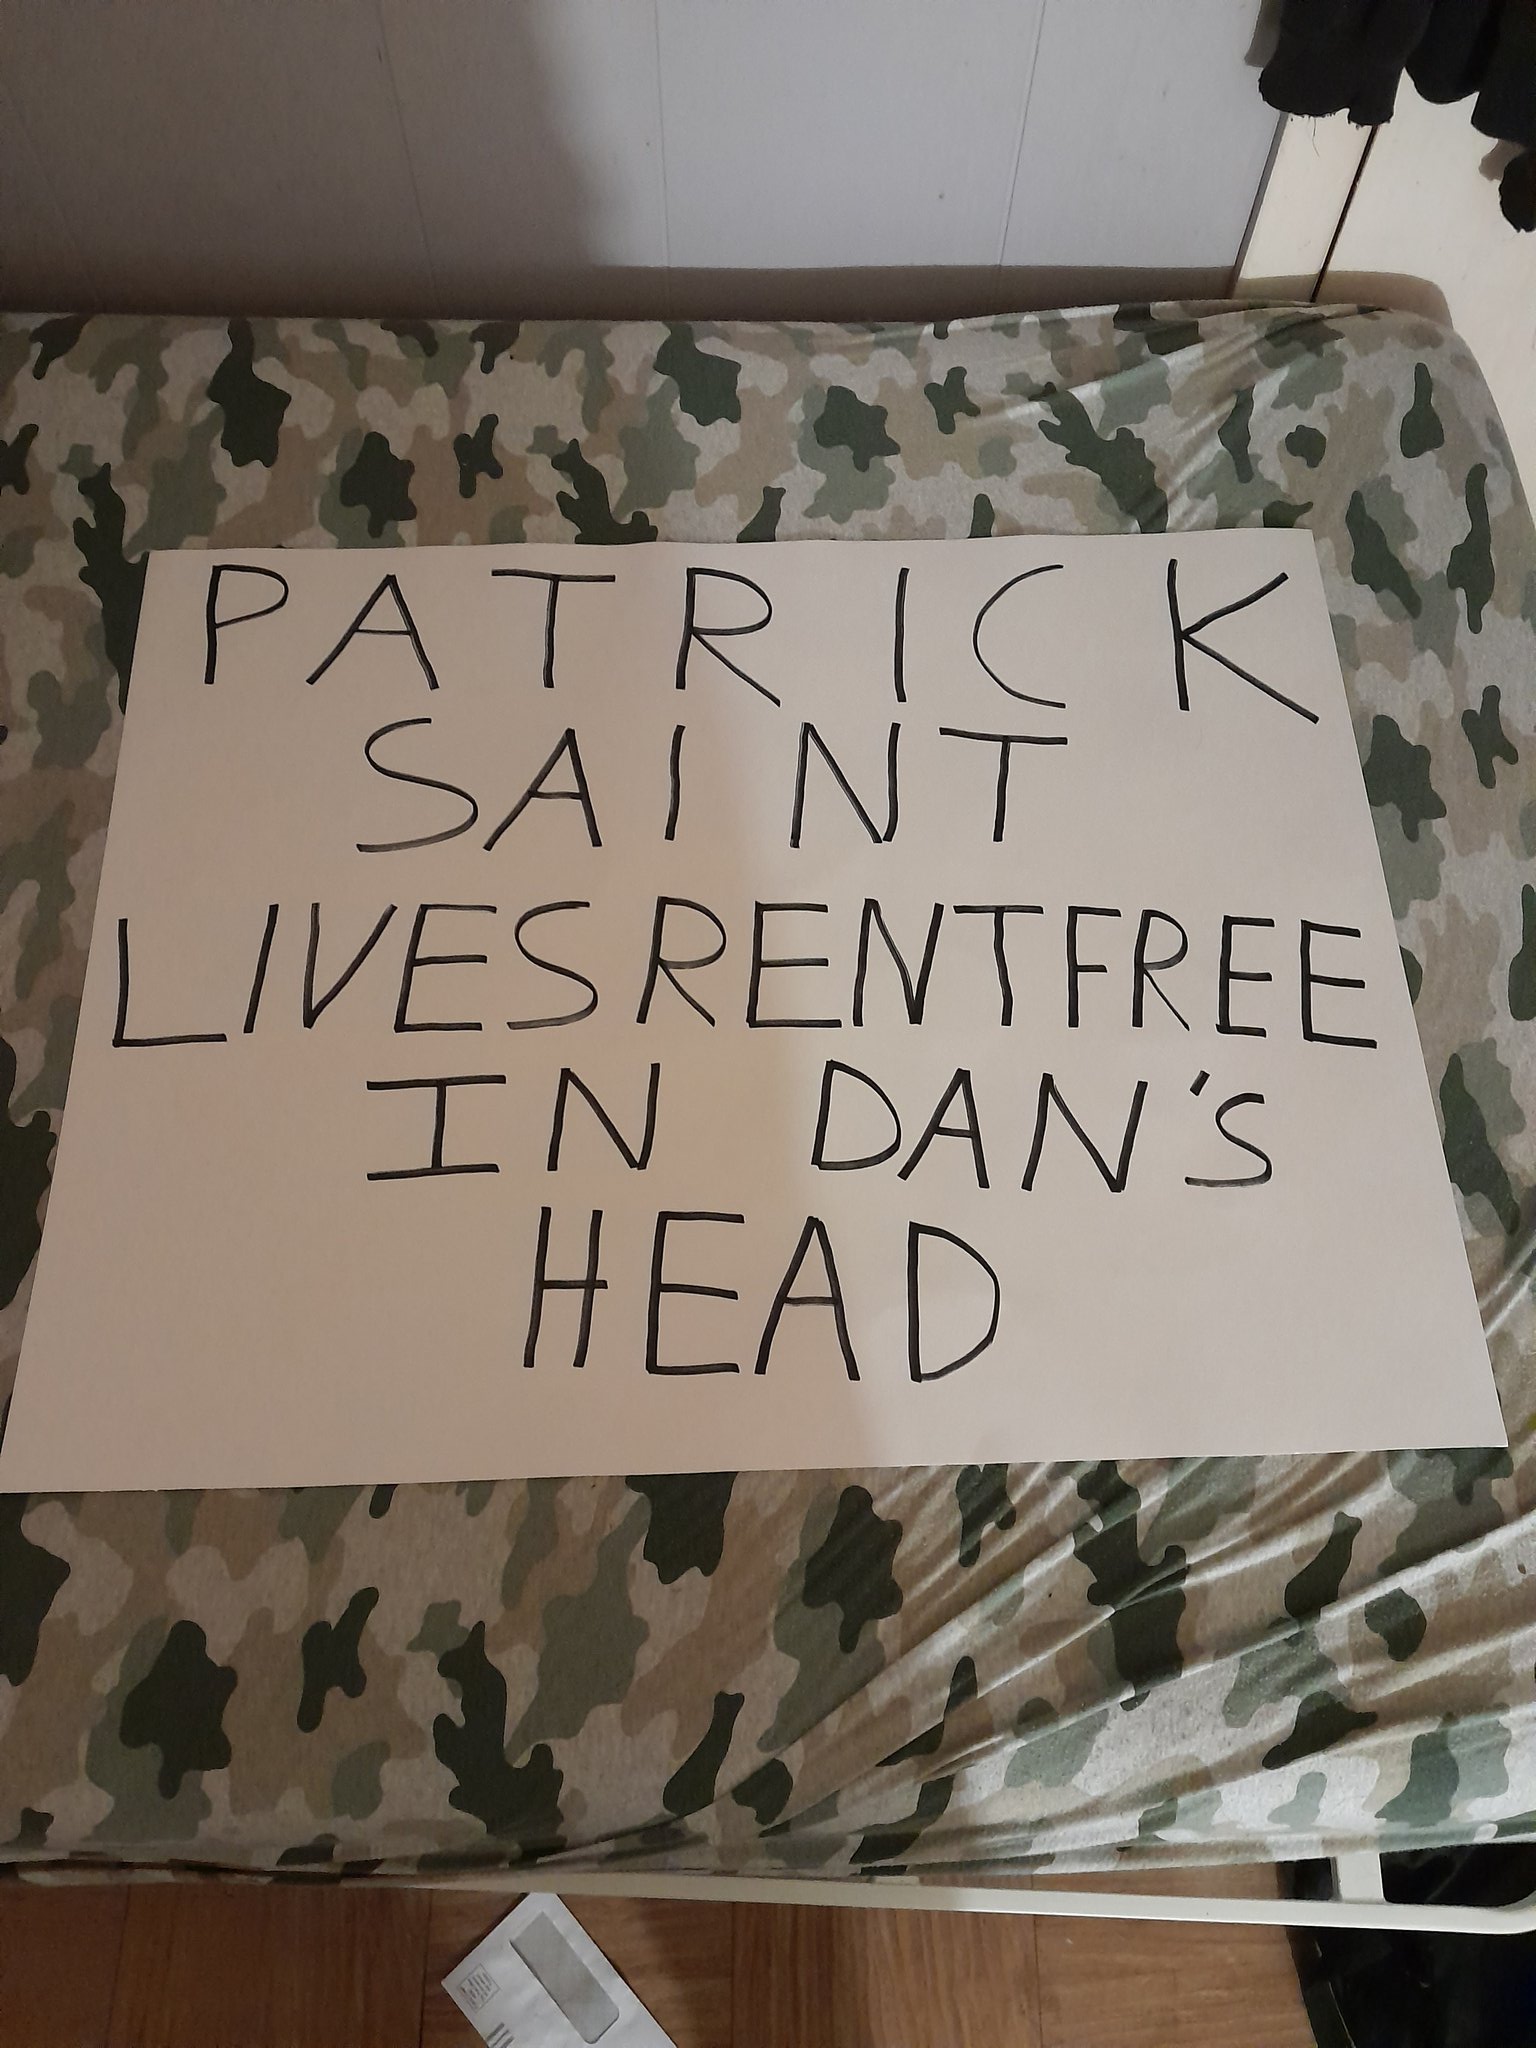 PATRICK
SAINT
LIVES RENT FREE
IN DAN'S
HEAD